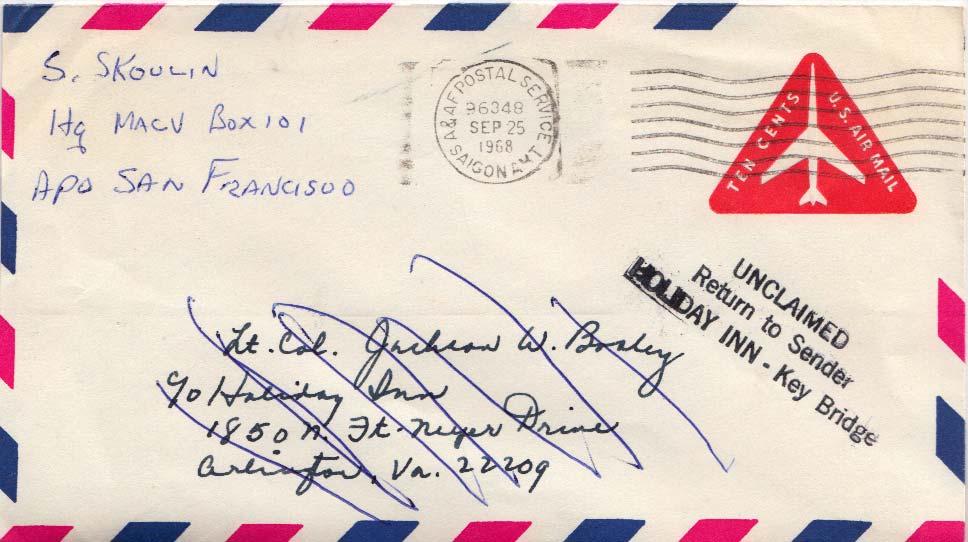 S. SKOULIN
Hq MACV Box 101
APO SAN FRANCISCO
A&AF POSTAL SERVICE
96348
SEP 25
1968
SAIGON
TEN CENTS
U.S. AIR MAIL
UNCLAIMED
Return to Sender
HOLIDAY INN - Key Bridge
Lt. Col. Jackson W.
c/o Holiday Inn
1850 N. Ft. Meyer Drive
Arlington, Va. 22209